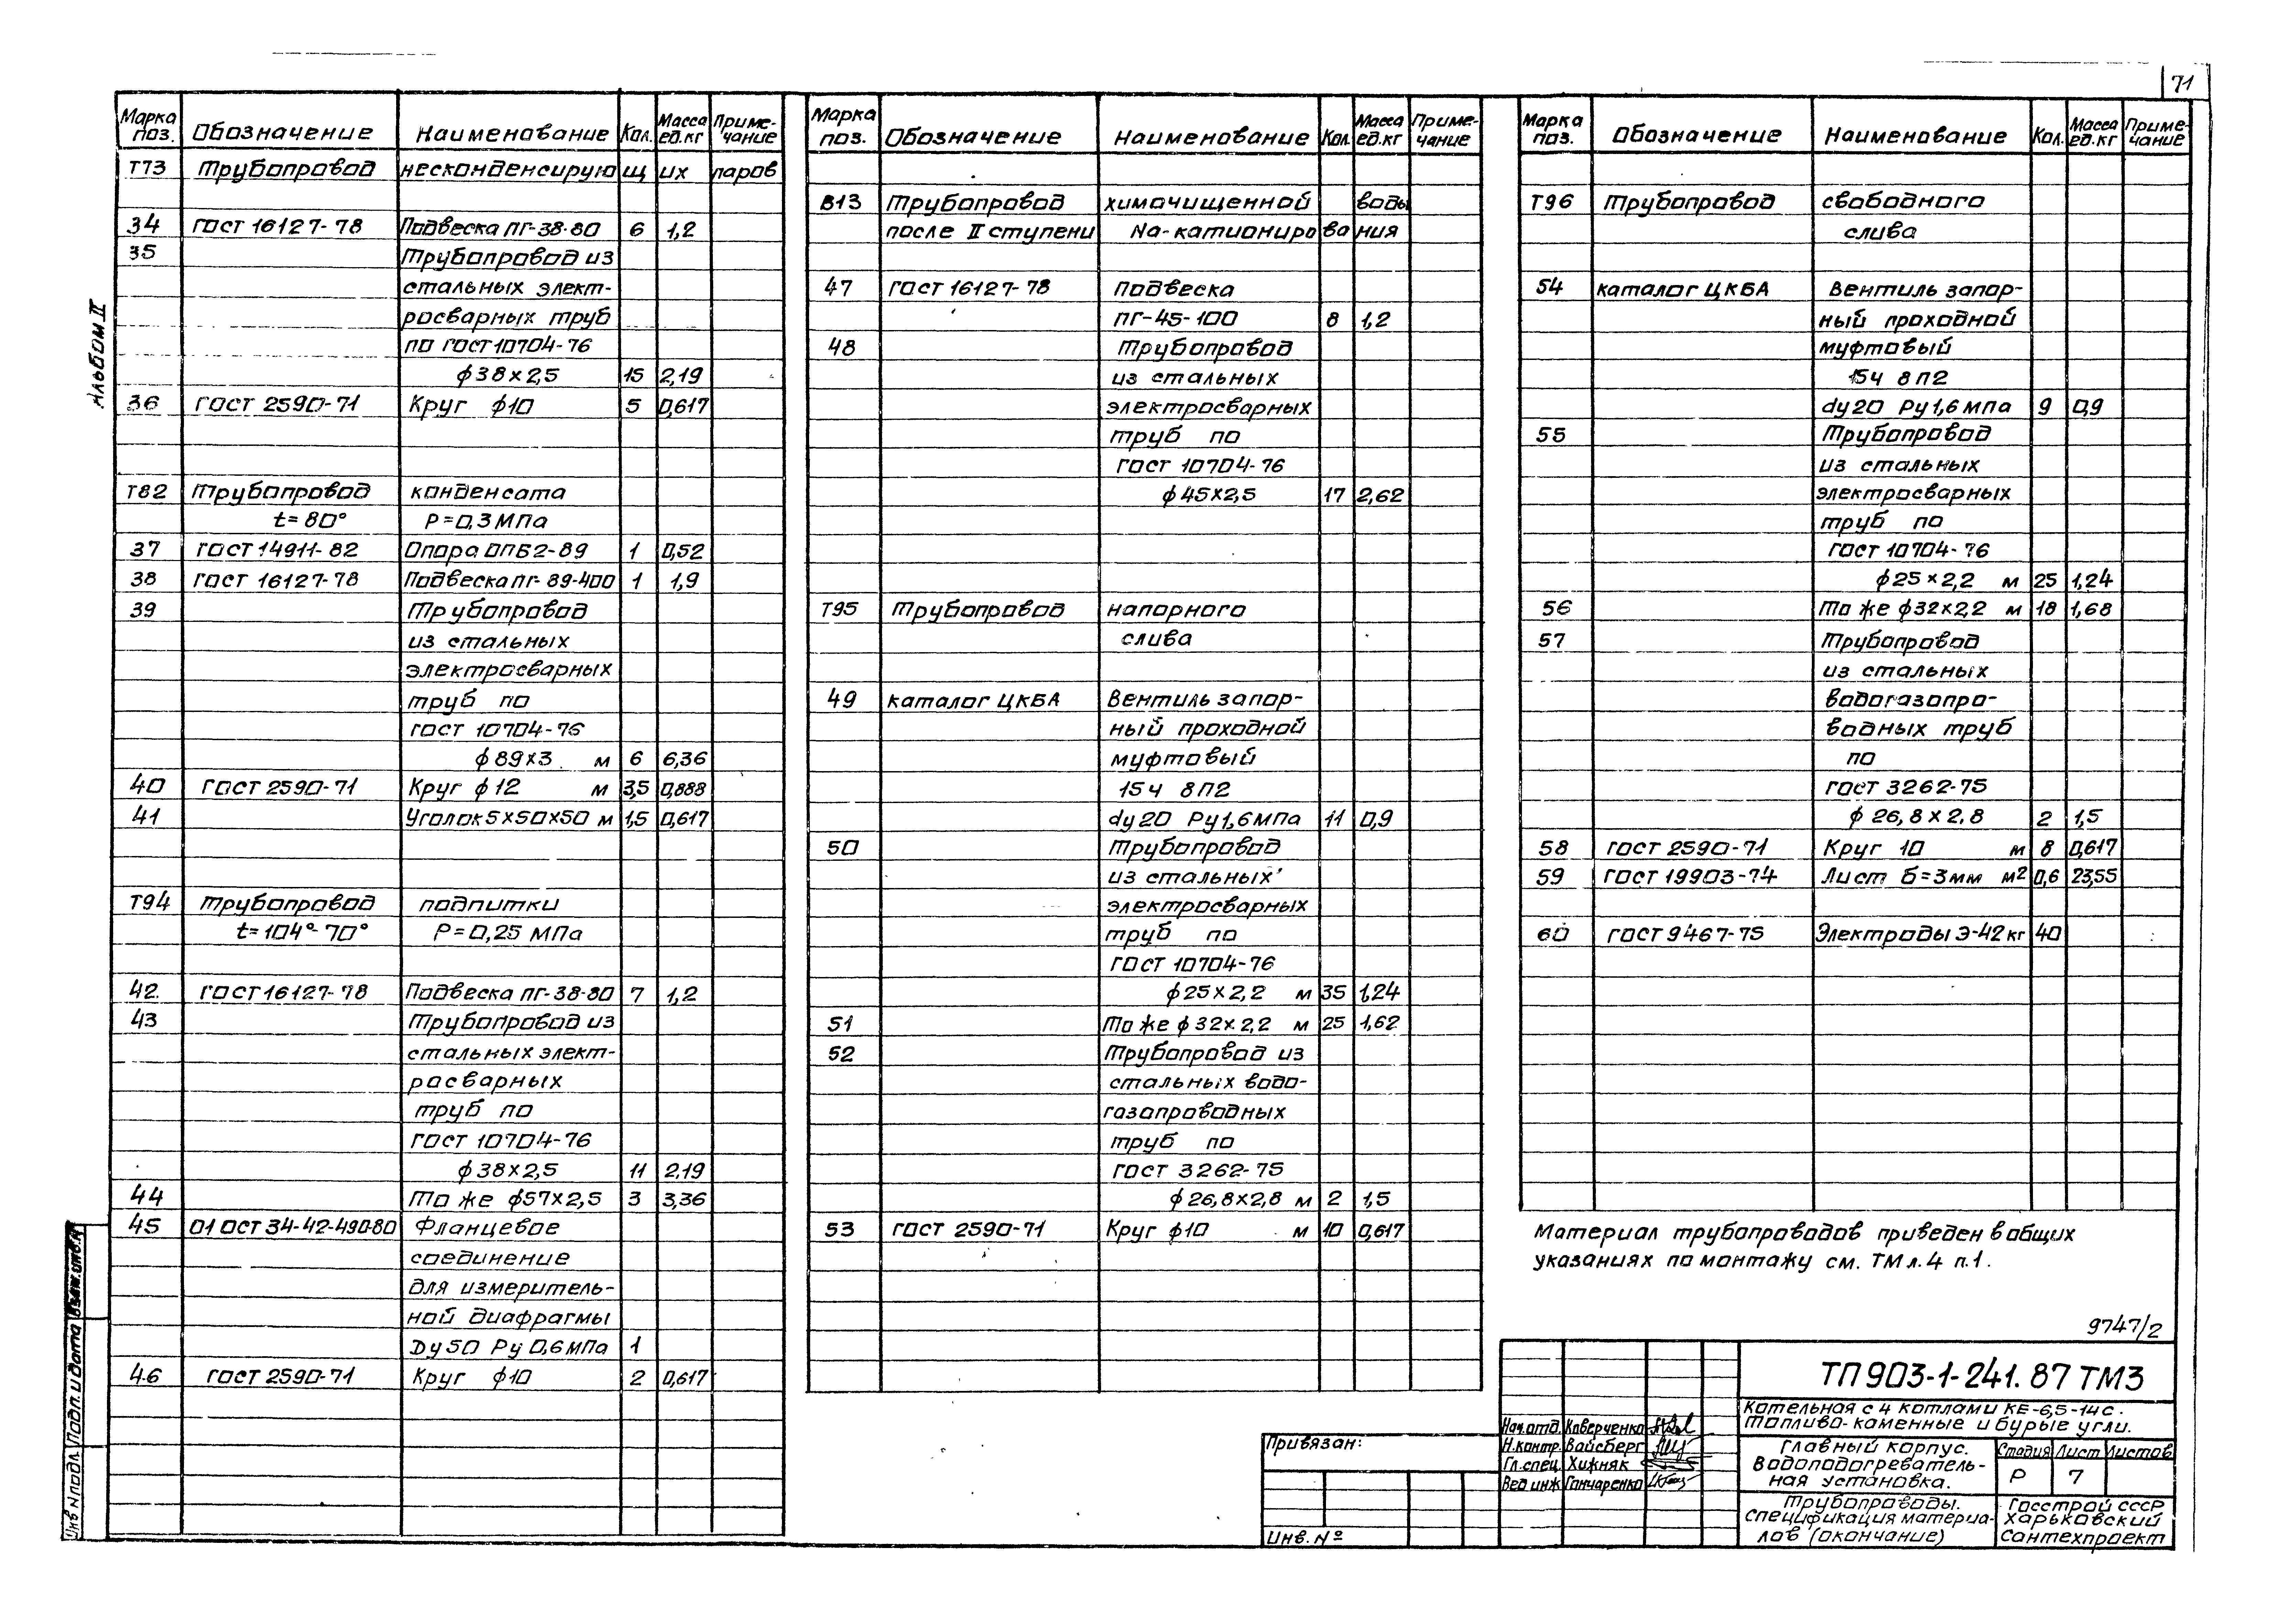 71
Альбом II
Марка поз. Обозначение Наименование Кол. Масса ед.кг Приме-чание
Т73 Трубопровод несконденсирующих паров
34 ГОСТ 16127-78 Подвеска ПГ-38-80 6 1,2
35 Трубопровод из
стальных элект-
росварных труб
по ГОСТ 10704-76
ф38×2,5 15 2,19
36 ГОСТ 2590-71 Круг ф10 5 0,617
Т82 Трубопровод конденсата
t=80° Р=0,3 МПа
37 ГОСТ 14911-82 Опора ОПБ2-89 1 0,52
38 ГОСТ 16127-78 Подвеска ПГ-89-400 1 1,9
39 Трубопровод
из стальных
электросварных
труб по
ГОСТ 10704-76
ф89×3 м 6 6,36
40 ГОСТ 2590-71 Круг ф12 м 3,5 0,888
41 Уголок 5×50×50 м 1,5 0,617
Т94 Трубопровод подпитки
t=104°-70° Р=0,25 МПа
42 ГОСТ 16127-78 Подвеска ПГ-38-80 7 1,2
43 Трубопровод из
стальных элект-
росварных
труб по
ГОСТ 10704-76
ф38×2,5 11 2,19
44 То же ф57×2,5 3 3,36
45 01 ОСТ 34-42-490-80 Фланцевое
соединение
для измеритель-
ной диафрагмы
Dу50 Ру 0,6 МПа 1
46 ГОСТ 2590-71 Круг ф10 2 0,617
Марка поз. Обозначение Наименование Кол. Масса ед.кг Приме-чание
В13 Трубопровод химочищенной воды
после II ступени Na-катионирования
47 ГОСТ 16127-78 Подвеска
ПГ-45-100 8 1,2
48 Трубопровод
из стальных
электросварных
труб по
ГОСТ 10704-76
ф45×2,5 17 2,62
Т95 Трубопровод напорного
слива
49 каталог ЦКБА Вентиль запор-
ный проходной
муфтовый
15ч 8п2
dу20 Ру1,6 МПа 11 0,9
50 Трубопровод
из стальных
электросварных
труб по
ГОСТ 10704-76
ф25×2,2 м 35 1,24
51 То же ф32×2,2 м 25 1,62
52 Трубопровод из
стальных водо-
газопроводных
труб по
ГОСТ 3262-75
ф26,8×2,8 м 2 1,5
53 ГОСТ 2590-71 Круг ф10 м 10 0,617
Марка поз. Обозначение Наименование Кол. Масса ед.кг Приме-чание
Т96 Трубопровод свободного
слива
54 каталог ЦКБА Вентиль запор-
ный проходной
муфтовый
15ч 8п2
dу20 Ру1,6 МПа 9 0,9
55 Трубопровод
из стальных
электросварных
труб по
ГОСТ 10704-76
ф25×2,2 м 25 1,24
56 То же ф32×2,2 м 18 1,68
57 Трубопровод
из стальных
водогазопро-
водных труб
по
ГОСТ 3262-75
ф26,8×2,8 2 1,5
58 ГОСТ 2590-71 Круг 10 м 8 0,617
59 ГОСТ 19903-74 Лист б=3мм м² 0,6 23,55
60 ГОСТ 9467-75 Электроды Э-42 кг 40
Материал трубопроводов приведен в общих
указаниях по монтажу см. ТМ л.4 п.1.
9747/2
ТП 903-1-241.87 ТМ3
Котельная с 4 котлами КЕ-6,5-14с.
Топливо-каменные и бурые угли.
Нач.отд. Каверченко
Н.контр. Вайсберг
Гл.спец. Хижняк
Вед инж Гончаренко
Главный корпус.
Водоподогреватель-
ная установка.
Стадия Лист Листов
Р 7
Трубопроводы.
Спецификация материа-
лов (окончание)
Госстрой СССР
Харьковский
Сантехпроект
Привязан:
Инв. №
Инв № подл. Подп. и дата Взам. инв. №